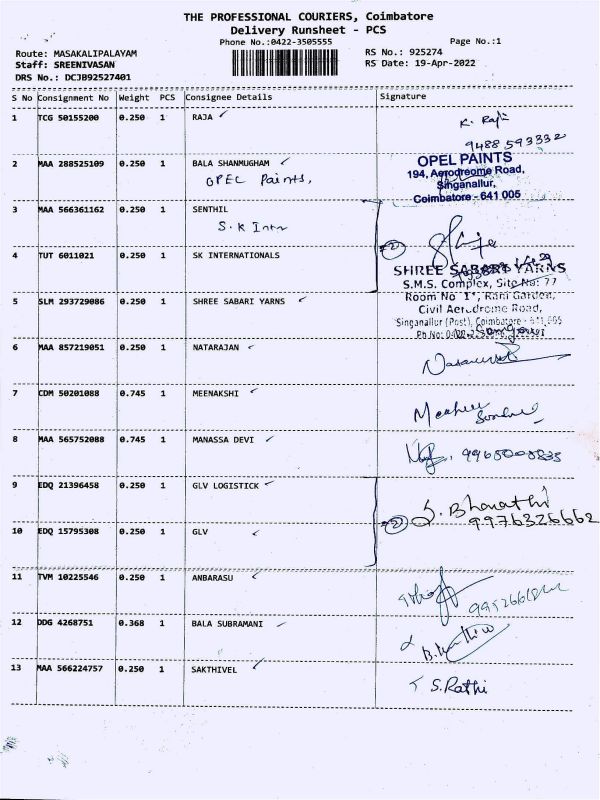 THE PROFESSIONAL COURIERS, Coimbatore
Delivery Runsheet - PCS
Phone No.:0422-3505555
Page No.:1
Route: MASAKALIPALAYAM
Staff: SREENIVASAN
DRS No.: DCJB92527401
RS No.: 925274
RS Date: 19-Apr-2022
S No Consignment No Weight PCS Consignee Details Signature
1 TCG 50155200 0.250 1 RAJA ✓ K. Raji
9488593332
2 MAA 288525109 0.250 1 BALA SHANMUGHAM ✓
OPEL Paints,
OPEL PAINTS
194, Aerodreome Road,
Singanallur,
Coimbatore - 641 005
3 MAA 566361162 0.250 1 SENTHIL
S.K Intn
4 TUT 6011021 0.250 1 SK INTERNATIONALS
2
SHREE SABARI YARNS
S.M.S. Complex, Site No: 77
Room No '1', Rani Garden,
Civil Aerodrome Road,
Singanallur (Post), Coimbatore - 641 005
Ph No: 0422
5 SLM 293729086 0.250 1 SHREE SABARI YARNS ✓
6 MAA 857219051 0.250 1 NATARAJAN ✓
7 CDM 50201088 0.745 1 MEENAKSHI ✓
8 MAA 565752088 0.745 1 MANASSA DEVI ✓
9 EDQ 21396458 0.250 1 GLV LOGISTICK ✓
2 S. Bharathi
9976326662
10 EDQ 15795308 0.250 1 GLV ✓
11 TVM 10225546 0.250 1 ANBARASU ✓
12 DDG 4268751 0.368 1 BALA SUBRAMANI ✓
13 MAA 566224757 0.250 1 SAKTHIVEL ✓ S.Rathi